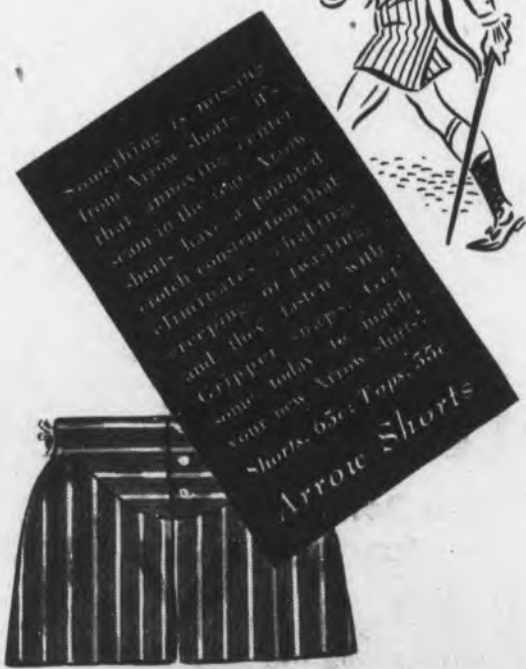 Something is missing
from Arrow shorts. It's
that annoying center
seam in the seat. Arrow
shorts have a patented
crotch construction that
eliminates chafing,
creeping, or twisting,
and they fasten with
Gripper snaps. Get
some today to match
your new Arrow shirts!
Shorts, 65c; Tops, 55c
Arrow Shorts